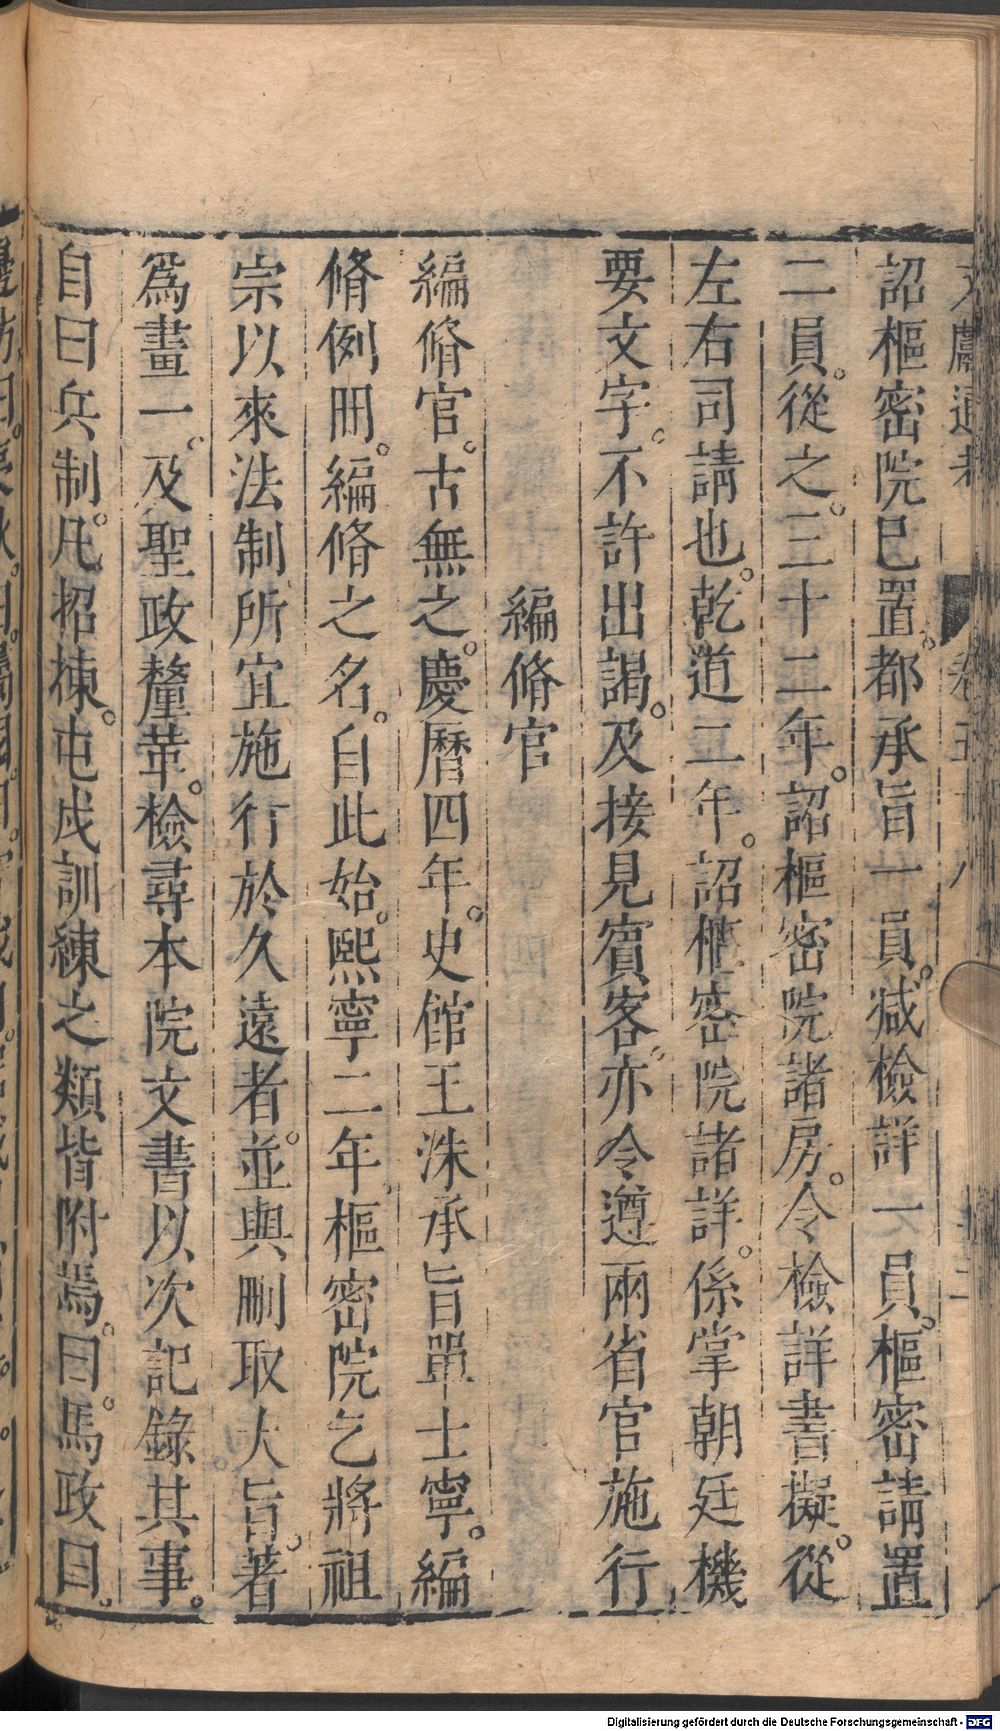 詔樞密院巳置。都承旨一員。减檢詳一員。樞密請置
二員。從之。三十二年。詔樞密院諸房。令檢詳書擬。從
左右司請也。乾道二年。詔樞密院諸詳。係掌朝廷機
要文字。不許出謁。及接見賓客。亦令遵兩省官施行
編脩官
編脩官。古無之。慶曆四年。史館王洙承旨單士寧。編
脩例冊。編脩之名。自此始。熙寧二年樞密院乞將祖
宗以來法制所宜施行於久遠者。並與刪取大旨。著
爲畫一。及聖政釐革。檢尋本院文書以次記錄其事。
自曰兵制。凡招揀。屯戍訓練之類皆附焉。曰。馬政曰。
Digitalisierung gefördert durch die Deutsche Forschungsgemeinschaft - DFG